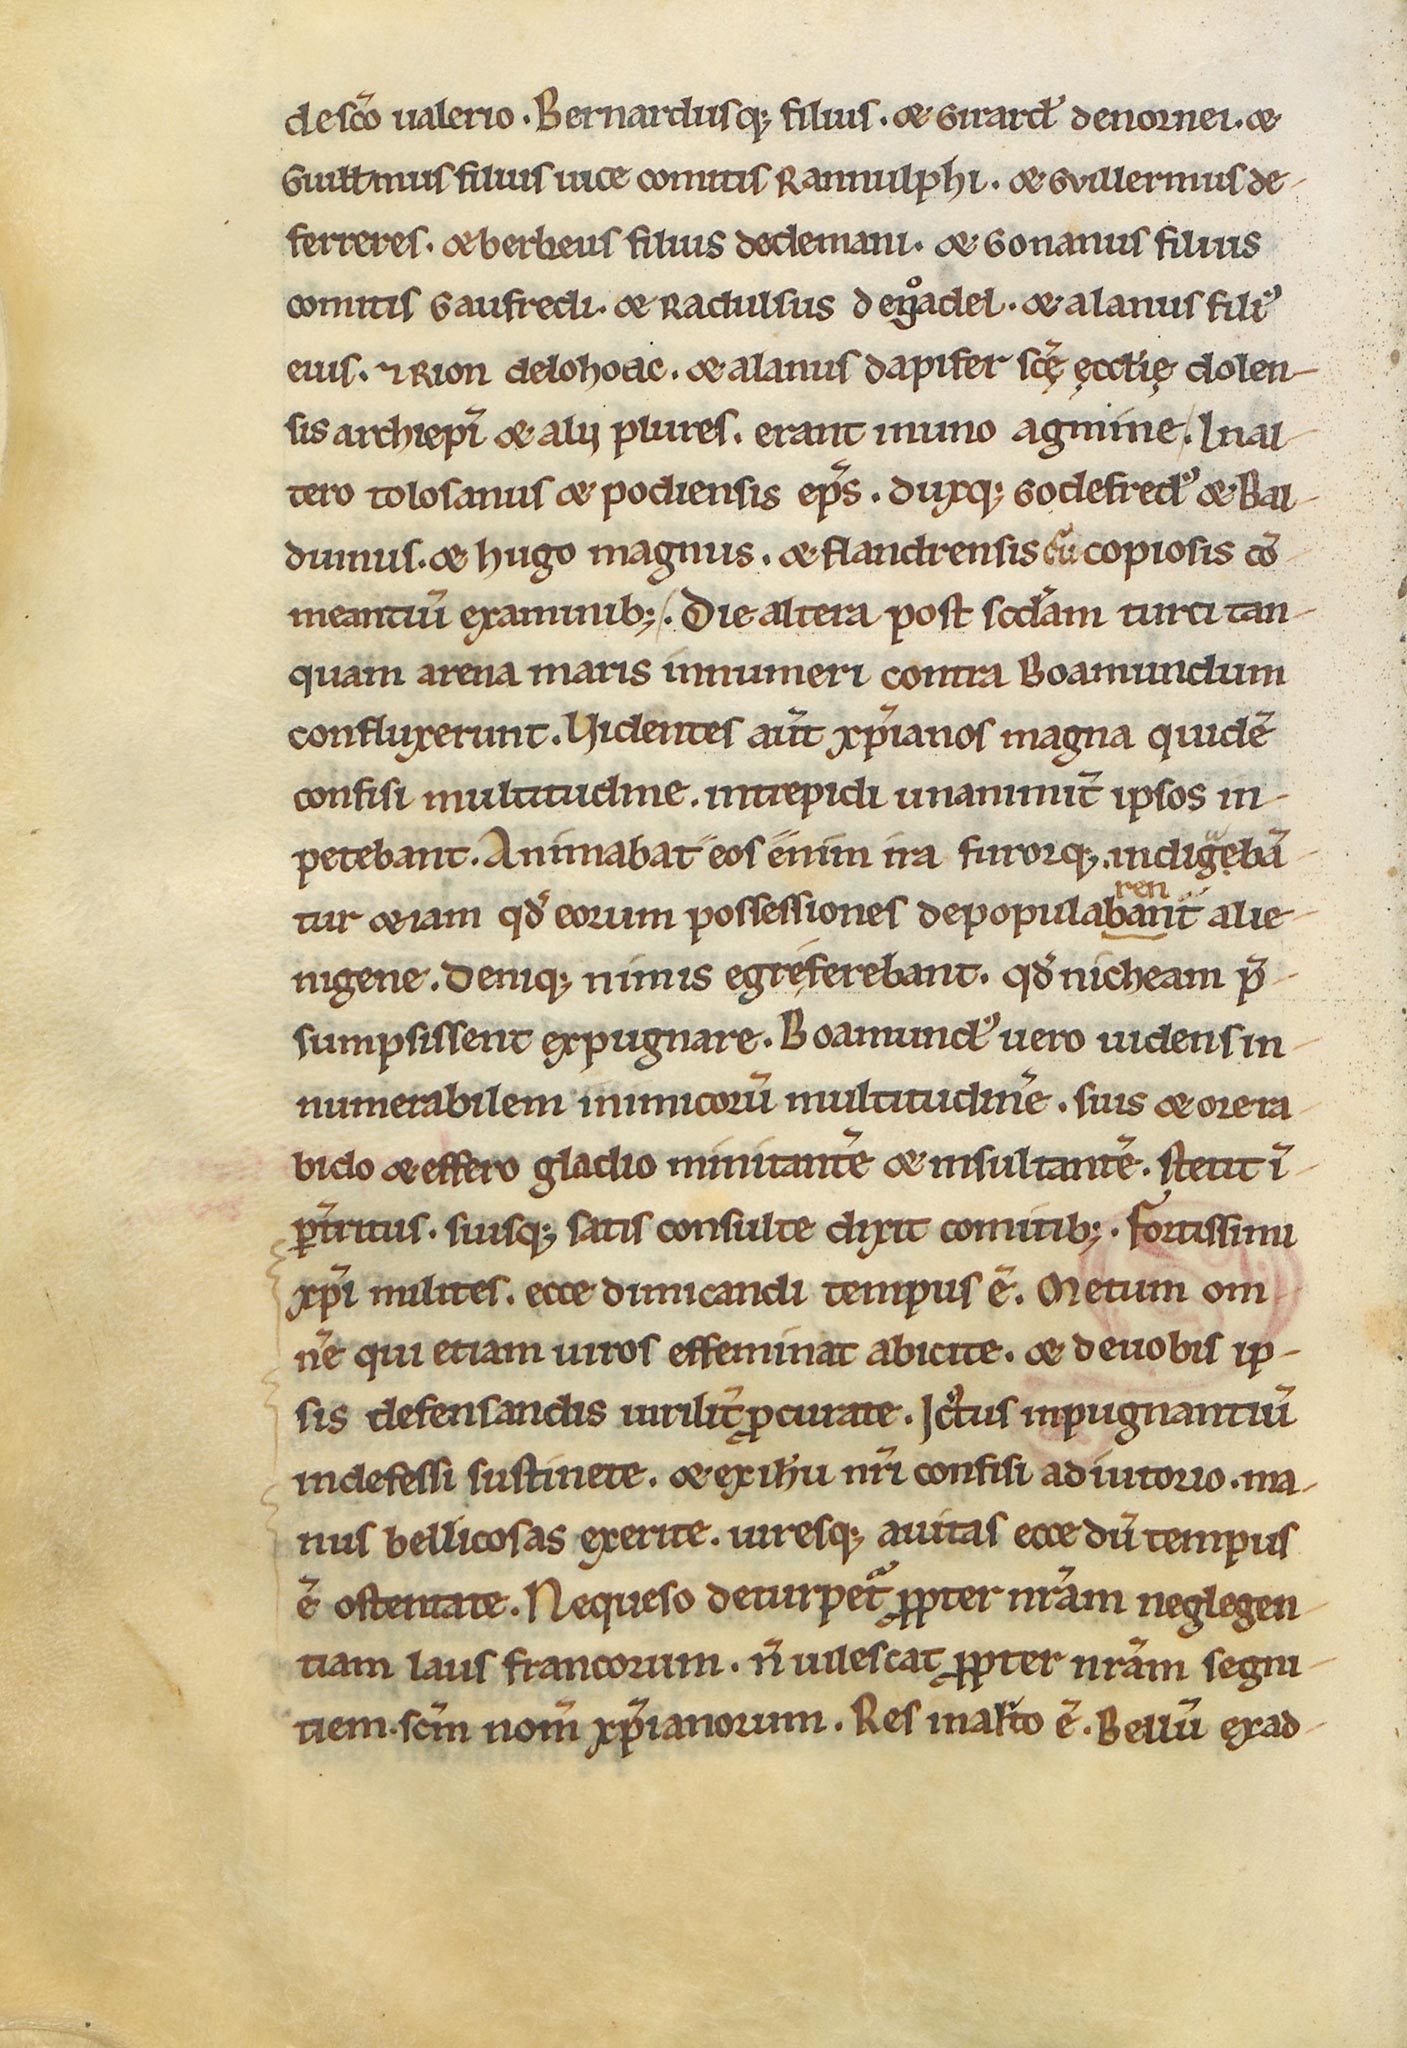 de sc̄o ualerio. Bernardusq; filius. & Girard᾿ de nornei. &
Guiłłmus filius uice comitis Rannulphi. & Gvillermus de
ferreres. & herbeus filius dedemani. & Gonanus filius
comitis Gaufredi. & Radulfus de g̊adel. & alanus fili᾿
eius. ⁊ Rion delohoac. & alanus dapifer sc̄ę ęccłię dolen-
sis archiep̄i & alij plures. erant in uno agmine. In al-
tero tolosanus & podiensis ep̄s. duxq; Godefred᾿ & Bal-
duinus. & hugo magnus. & flandrensis cū copiosis cō-
meantiū examinib;. Die altera post scd̄am turci tan-
quam arena maris innumeri contra Boamundum
confluxerunt. Videntes aūt xp̄ianos magna quidē
confisi multitudine. intrepidi unanimit̄ ipsos in-
petebant. Animabat eos enim ira furorq;. indigębā
tur &iam qd̄ eorum possessiones depopulabant᾿ren alie-
nigene. Deniq; nimis egre ferebant. qd̄ nicheam p̄-
sumpsissent expugnare. Boamund᾿ uero uidens in-
numerabilem inimicorū multitudinē. suis & ore ra
bido & effero gladio minitantē & insultantē. stetit ī-
p̄t̄ritus. suisq; satis consulte dixit comitib;. Fortissimi
xp̄i milites. ecce dimicandi tempus ē. Metum om
nē qui etiam uiros effeminat abicite. & de uobis ip-
sis defensandis uirilit̄ ꝓcurate. Ictus inpugnantiū
indefessi sustinete. & ex ih̄u nr̄i confisi adiutorio. ma-
nus bellicosas exerite. uiresq; auitas ecce dū tempus
ē ostentate. Ne queso deturpet᾿ ꝓpter nr̄am neglegen-
tiam laus francorum. n̄ uilescat ꝓpter nr̄am segni-
tiem. scm̄ nom̄ xp̄ianorum. Res in arto ē. Bellū exad-